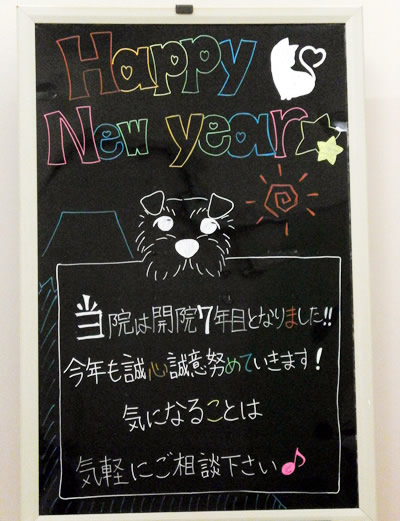 Happy
New year
当院は開院7年目となりました!!
今年も誠心誠意努めていきます!
気になることは
気軽にご相談下さい♪